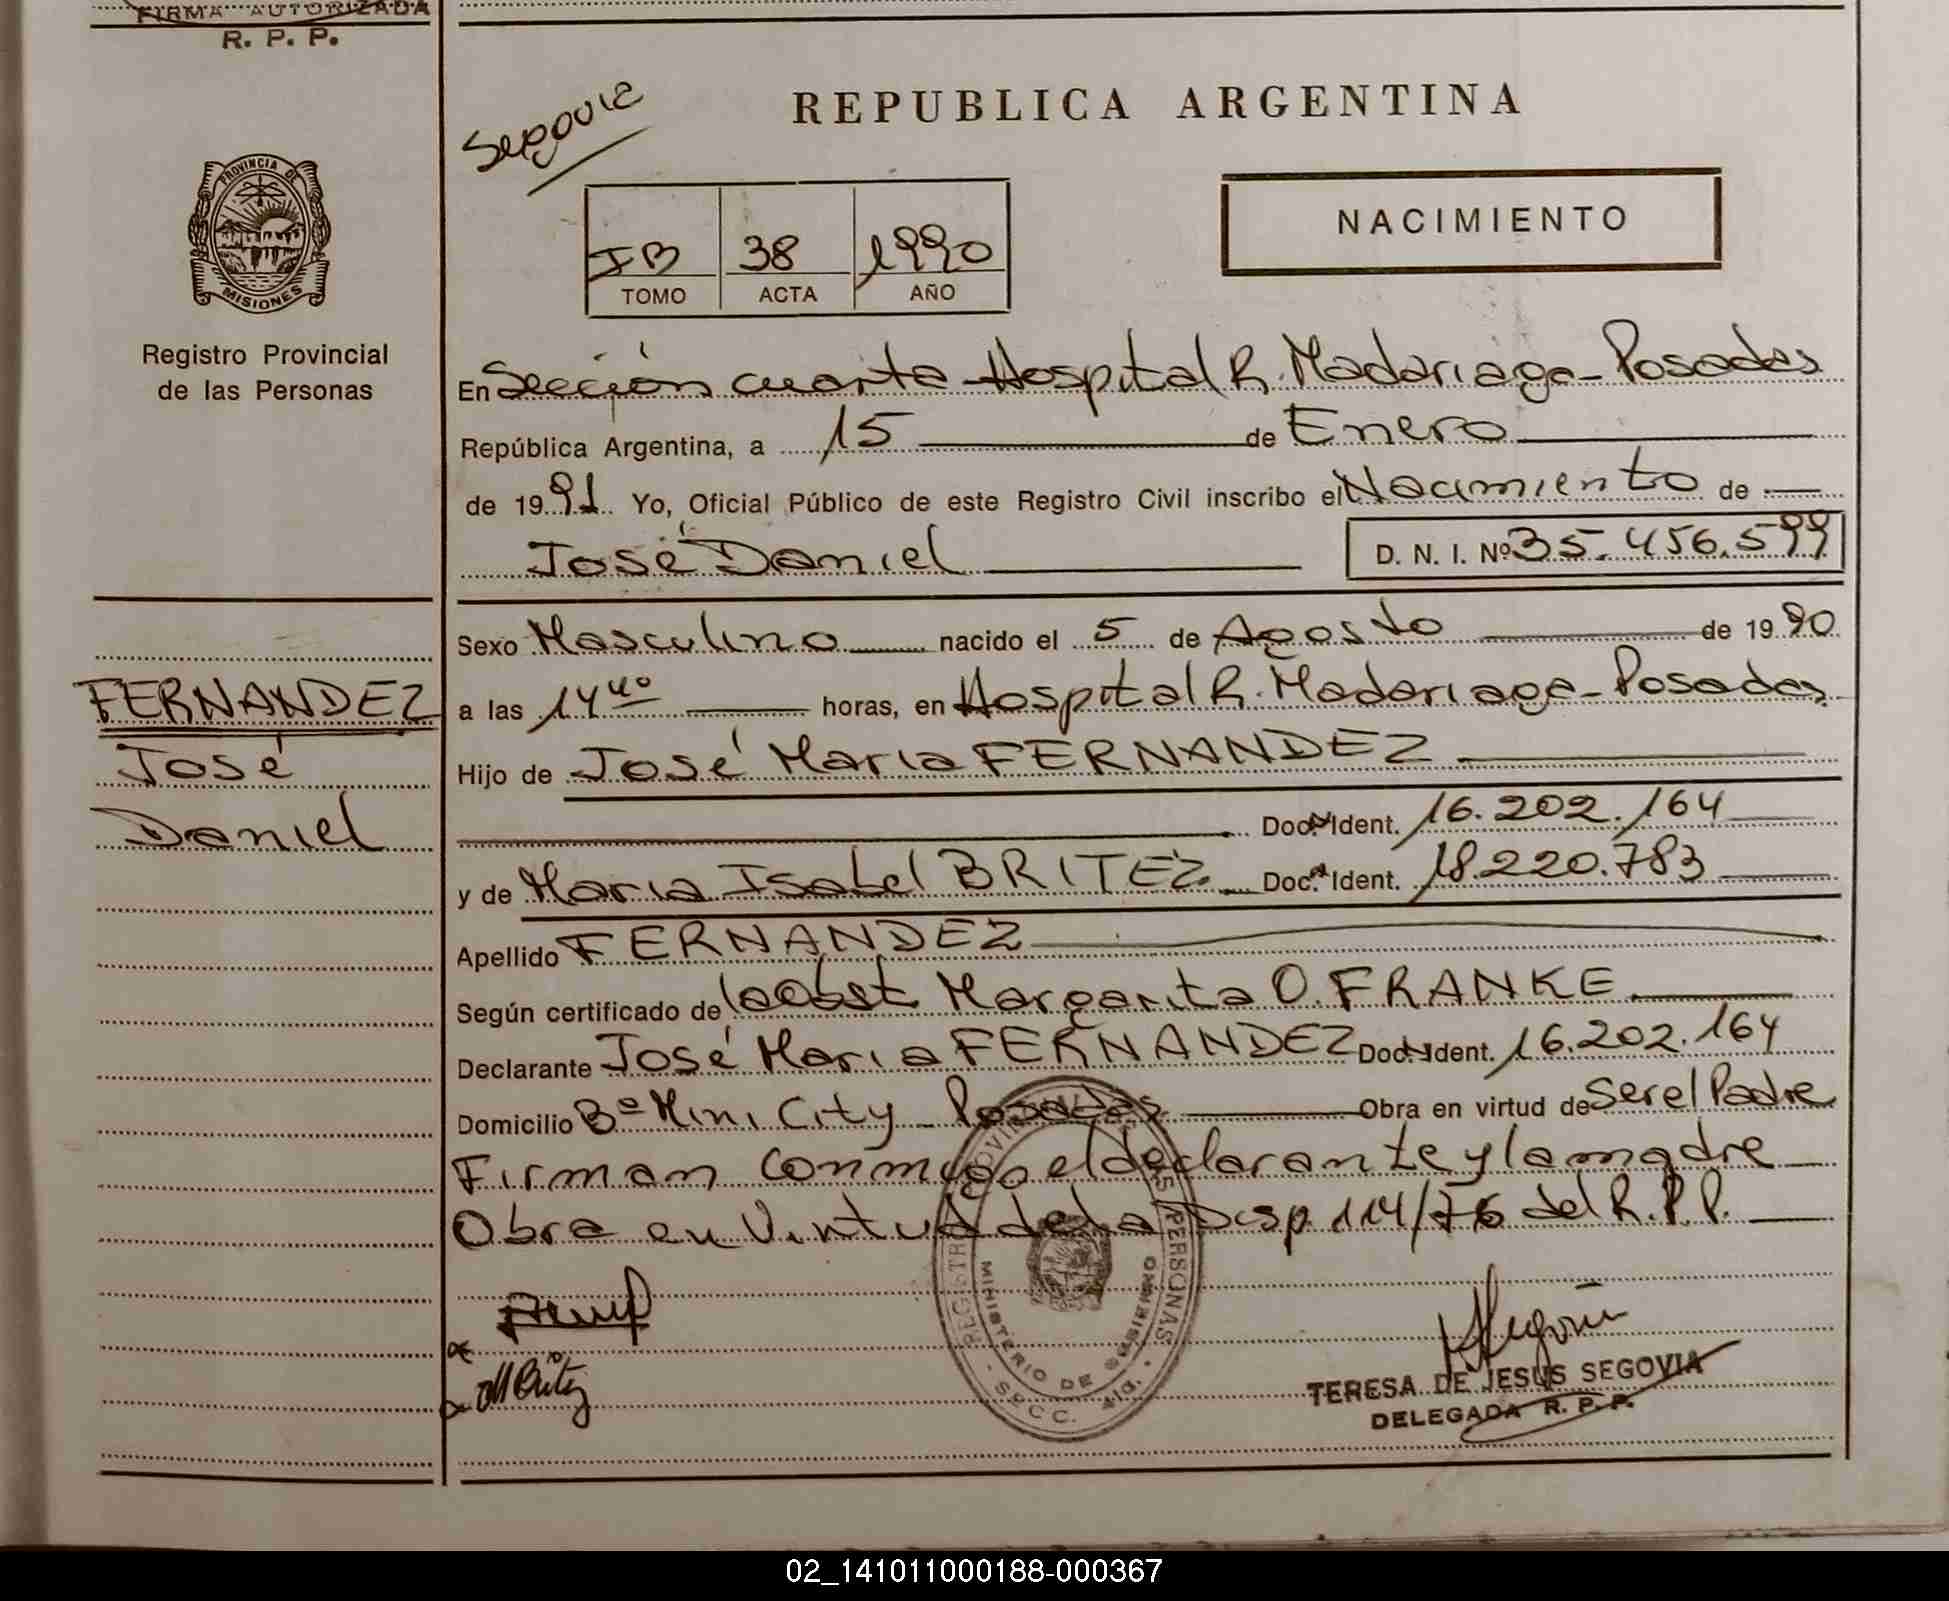 FIRMA AUTORIZADA
R. P. P.
PROVINCIA DE
MISIONES
Registro Provincial
de las Personas
FERNANDEZ
José
Daniel
Segovia
REPUBLICA ARGENTINA
NACIMIENTO
IB 38 1990
TOMO ACTA AÑO
En Sección cuarta Hospital R. Madariaga - Posadas
República Argentina, a 15 de Enero
de 1991 Yo, Oficial Público de este Registro Civil inscribo el Nacimiento de
José Daniel D. N. I. Nº 35.456.599
Sexo Masculino nacido el 5 de Agosto de 1990
a las 14 40 horas, en Hospital R. Madariaga - Posadas
Hijo de José Maria FERNANDEZ
Doc. Ident. 16.202.164
y de Maria Isabel BRITEZ Doc. Ident. 18.220.783
Apellido FERNANDEZ
Según certificado de la Obst Margarita O. FRANKE
Declarante José Maria FERNANDEZ Doc. Ident. 16.202.164
Domicilio Bº Mini City - Posadas Obra en virtud de Ser el Padre
Firman conmigo el declarante y la madre
Obra en Virtud de la Disp 114/76 del R.P.P.
M Britez
REGISTRO PROVINCIAL DE LAS PERSONAS
MINISTERIO DE GOBIERNO
SECC. 4ta.
TERESA DE JESUS SEGOVIA
DELEGADA R. P. P.
02_141011000188-000367